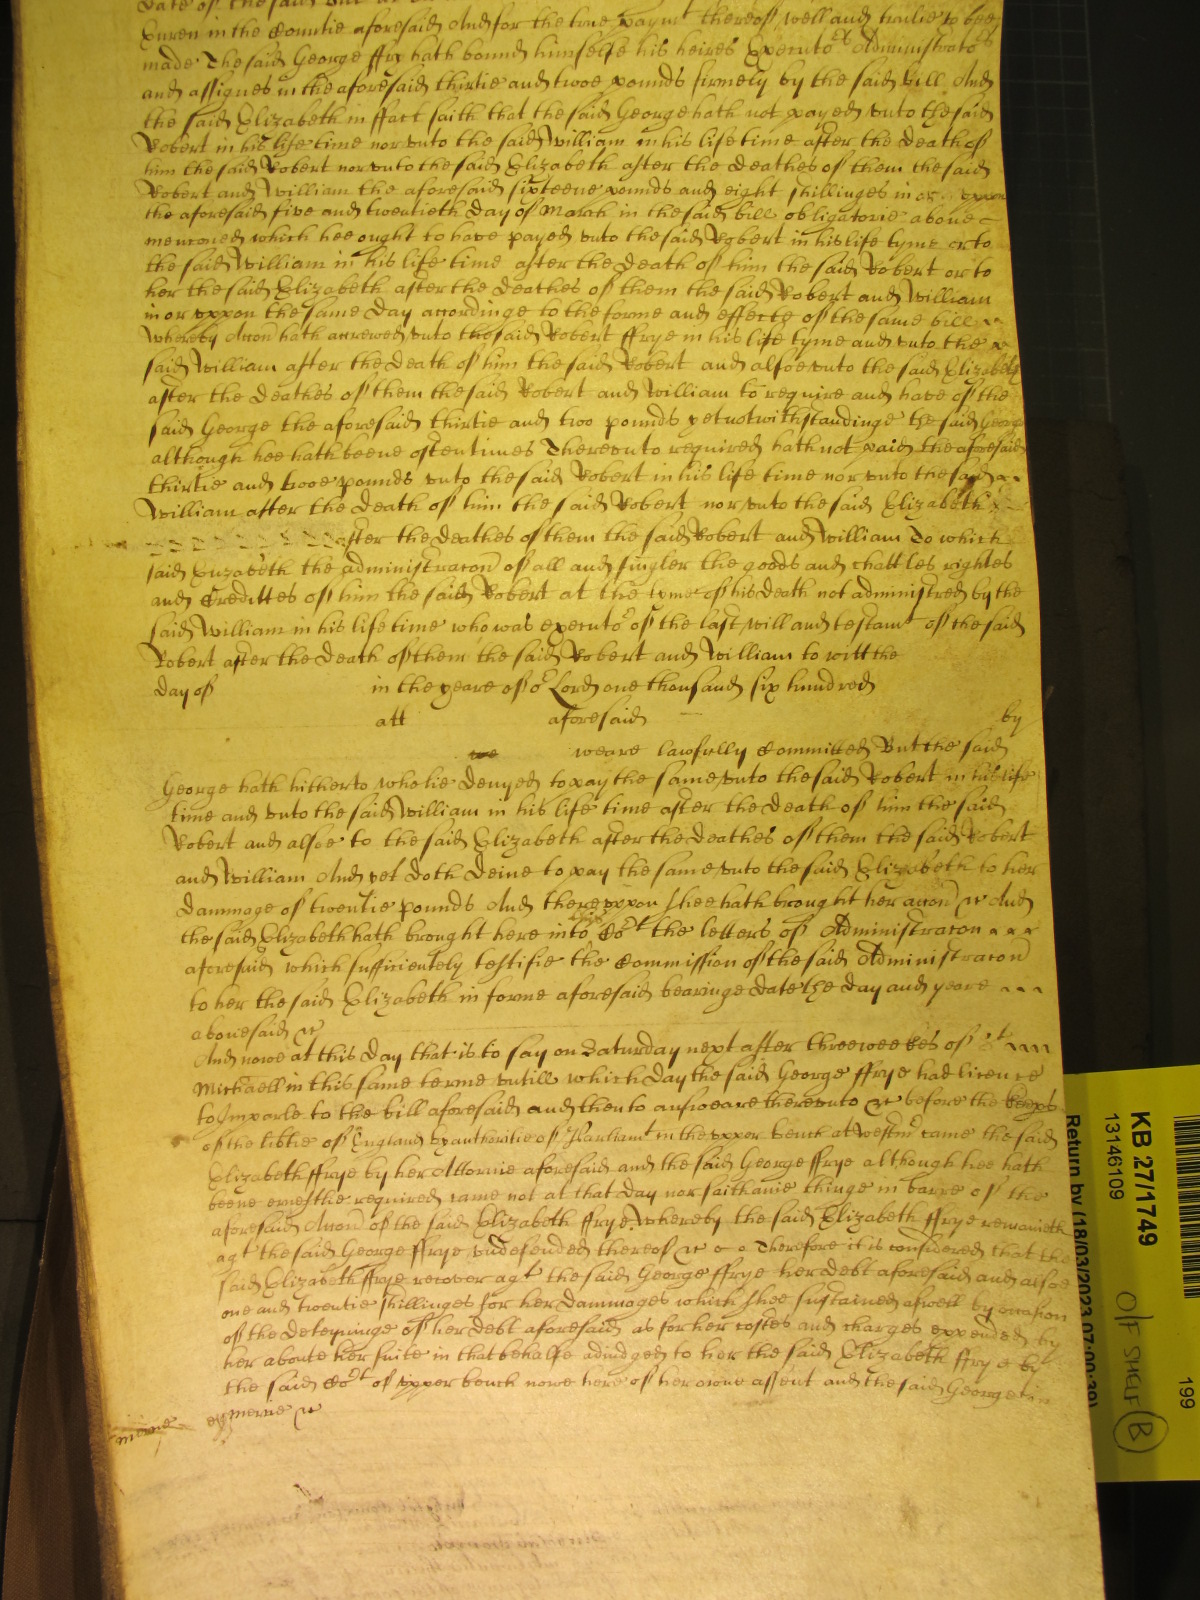 date of the said
Buren in the Countie aforesaid And for the true paymt thereof well and trulie to bee
made The said George ffry hath bound himselfe his heires Executors Administrators
and assignes in the aforesaid thirtie and twoe pounds firmely by the said bill And
the said Elizabeth in ffact saith that the said George hath not payed vnto the said
Robert in his life time nor vnto the said William in his life time after the death of
him the said Robert nor vnto the said Elizabeth after the deathes of them the said
Robert and William the aforesaid sixteene pounds and eight shillinges in or vppon
the aforesaid five and twentieth day of March in the said bill obligatorie above
menconed which hee ought to have payed vnto the said Robert in his life tyme or to
the said William in his life time after the death of him the said Robert or to
her the said Elizabeth after the deathes of them the said Robert and William
in or vppon the same day accordinge to the forme and effecte of the same bill
Whereby Accon hath accrewed vnto the said Robert ffrye in his life tyme and vnto the
said William after the death of him the said Robert and alsoe vnto the said Elizabeth
after the deathes of them the said Robert and William to require and have of the
said George the aforesaid thirtie and two pounds yet notwithstandinge the said George
although hee hath beene oftentimes Therevnto required hath not paid the aforesaid
thirtie and twoe pounds vnto the said Robert in his life time nor vnto the said
William after the death of him the said Robert nor vnto the said Elizabeth
after the deathes of them the said Robert and William To which
said Elizabeth the administracon of all and singler the goods and chattles rightes
and Credittes of him the said Robert at the tyme of his death not administred by the
said William in his life time who was executor of the last will and testamt of the said
Robert after the death of them the said Robert and William to witt the
day of in the yeare of or Lord one thousand six hundred
att aforesaid by
weare lawfully Committed But the said
George hath hitherto wholie denyed to pay the same vnto the said Robert in his life
time and vnto the said William in his life time after the death of him the said
Robert and alsoe to the said Elizabeth after the deathes of them the said Robert
and William And yet doth denie to pay the same vnto the said Elizabeth to her
dammage of twentie pounds And therevppon shee hath brought her accon &c And
the said Elizabeth hath brought here into this Cort the letters of Administracon
aforesaid which sufficientely testifie the Commission of the said Administracon
to her the said Elizabeth in forme aforesaid bearinge date the day and yeare
abovesaid &c
And nowe at this day that is to say on Saturday next after three weekes of St
Michaell in this same terme vntill which day the said George ffrye had licence
to Imparle to the bill aforesaid and then to answeare therevnto &c before the keepers
of the libtie of England by authoritie of Parliamt in the vpper bench at Westmr came the said
Elizabeth ffrye by her Attornie aforesaid and the said George ffrye although hee hath
beene ernestlie required came not at that day nor saith anie thinge in barre of the
aforesaid Accon of the said Elizabeth ffrye. Whereby the said Elizabeth ffrye remaineth
agt the said George ffrye vndefended thereof &c Therefore it is considered that the
said Elizabeth ffrye recover agt the said George ffrye her debt aforesaid and alsoe
one and twentie shillinges for her dammages which shee sustained aswell by occasion
of the deteyninge of her debt aforesaid as for her costes and charges expended by
her aboute her suite in that behalfe adiudged to her the said Elizabeth ffrye by
the said Cort of vpper bench nowe here of her owne assent and the said George in
mercie
mercie &c
KB 27/1749
13146109
Return by (18/03/2023 07:00:39)
O/F SHELF B
199